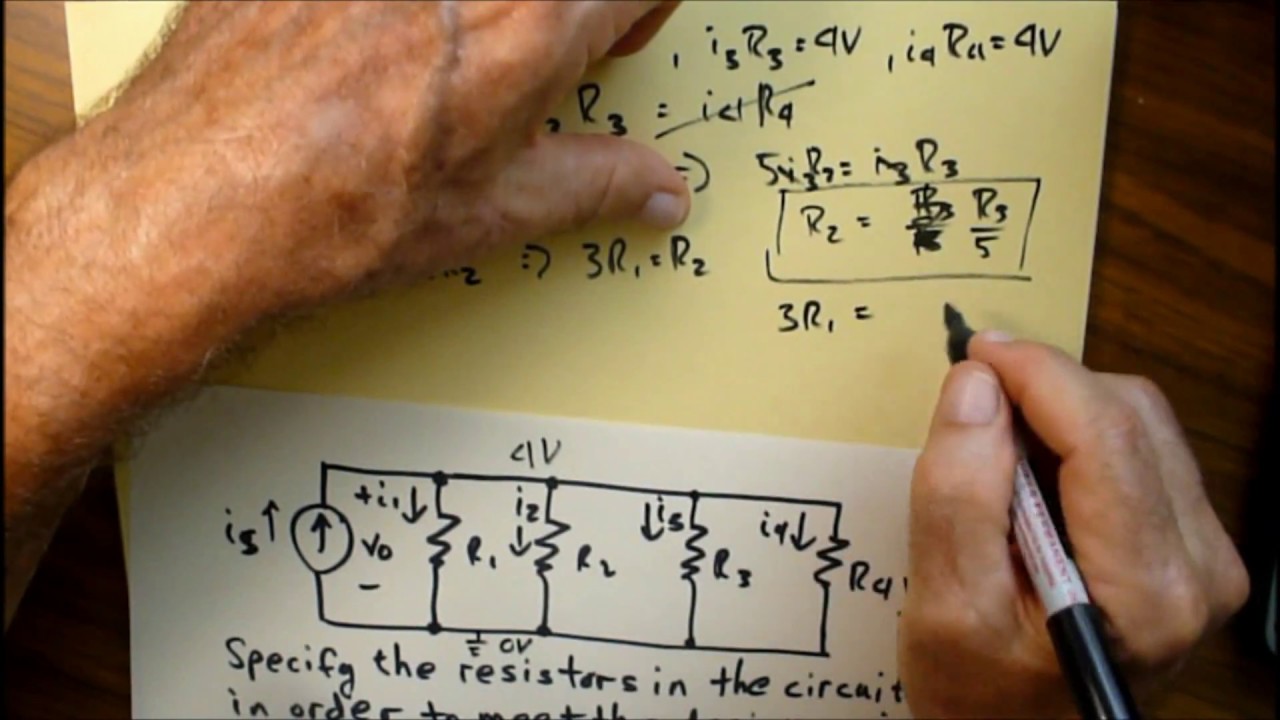 , i₃R₃=4V , i₄R₄=4V
R₃ = i₄R₄
⇒ 5i₃R₂= i₃R₃
R₂ = R₃/5
⇒ 3R₁=R₂
3R₁ =
4V
+ i₁↓ i₂ ↓i₃ i₄↓
iₛ↑ v₀ R₁ ↓ R₂ R₃ R₄
-
0V
Specify the resistors in the circuit
in order to meet the